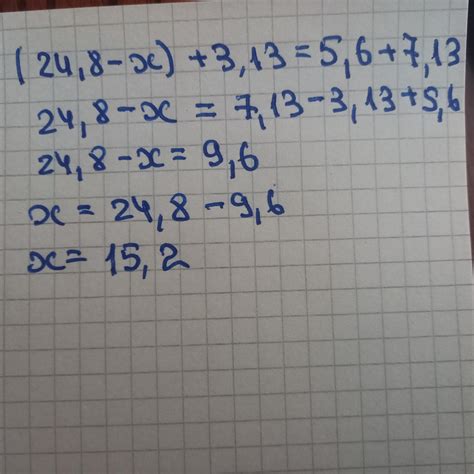 (24,8-x)+3,13=5,6+7,13
24,8-x=7,13-3,13+5,6
24,8-x=9,6
x=24,8-9,6
x=15,2